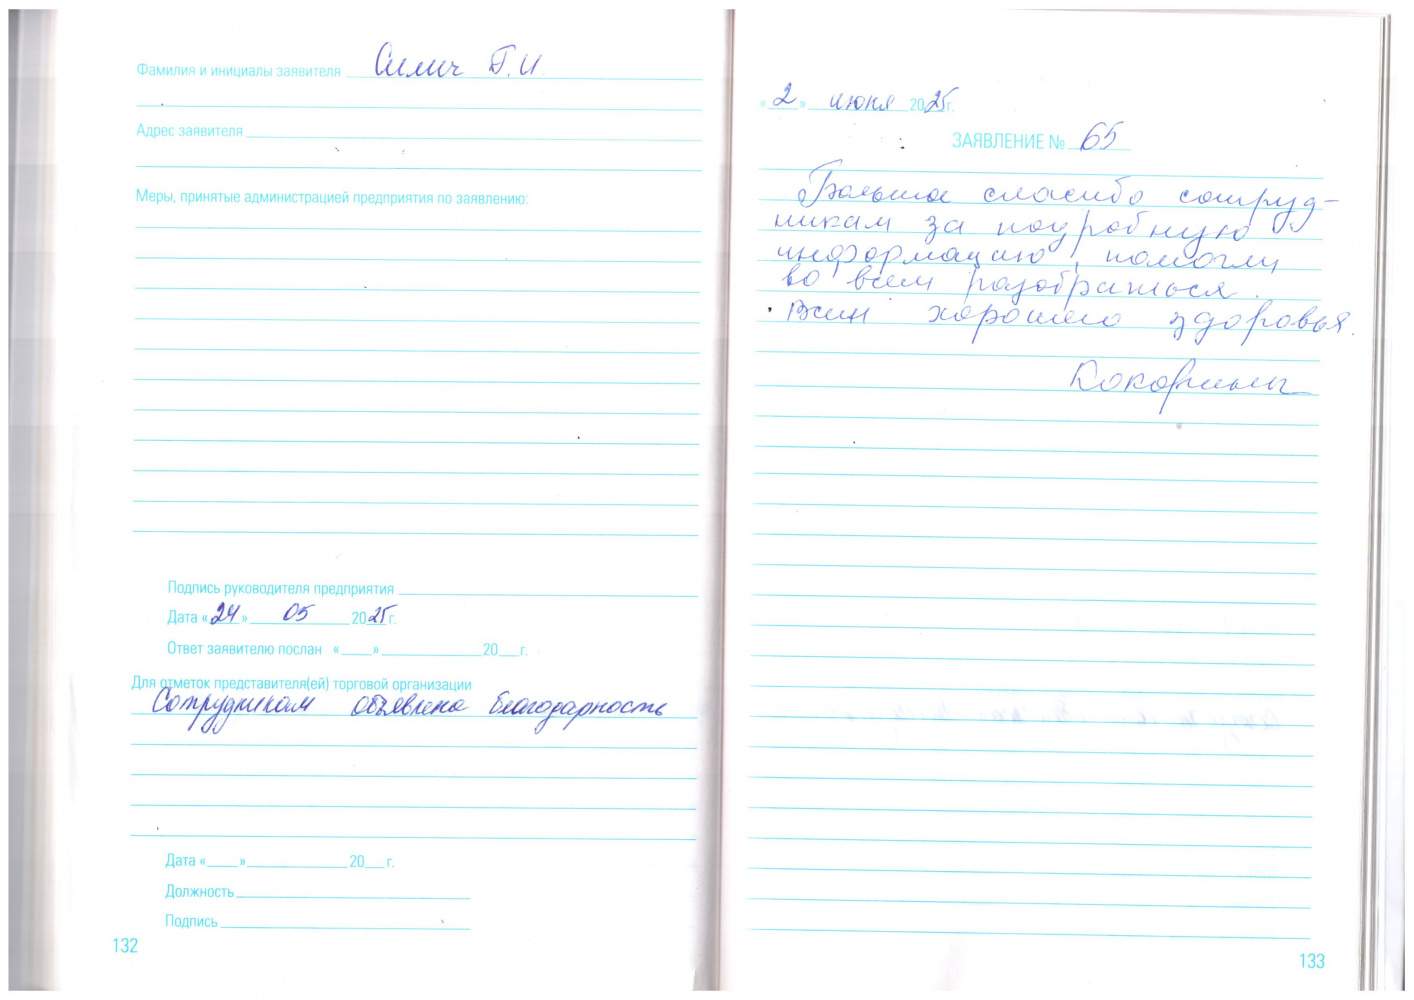 Фамилия и инициалы заявителя Силич Г.И
Адрес заявителя
Меры, принятые администрацией предприятия по заявлению:
Подпись руководителя предприятия
Дата «24» 05 2025г.
Ответ заявителю послан «___» ___ 20___г.
Для отметок представителя(ей) торговой организации
Сотрудникам объявлена благодарность
Дата «___» ___ 20___г.
Должность
Подпись
132
«2» июня 2025г.
ЗАЯВЛЕНИЕ № 65
Большое спасибо сотруд-
никам за подробную
информацию, помогли
во всем разобраться.
Всем хорошего здоровья.
133